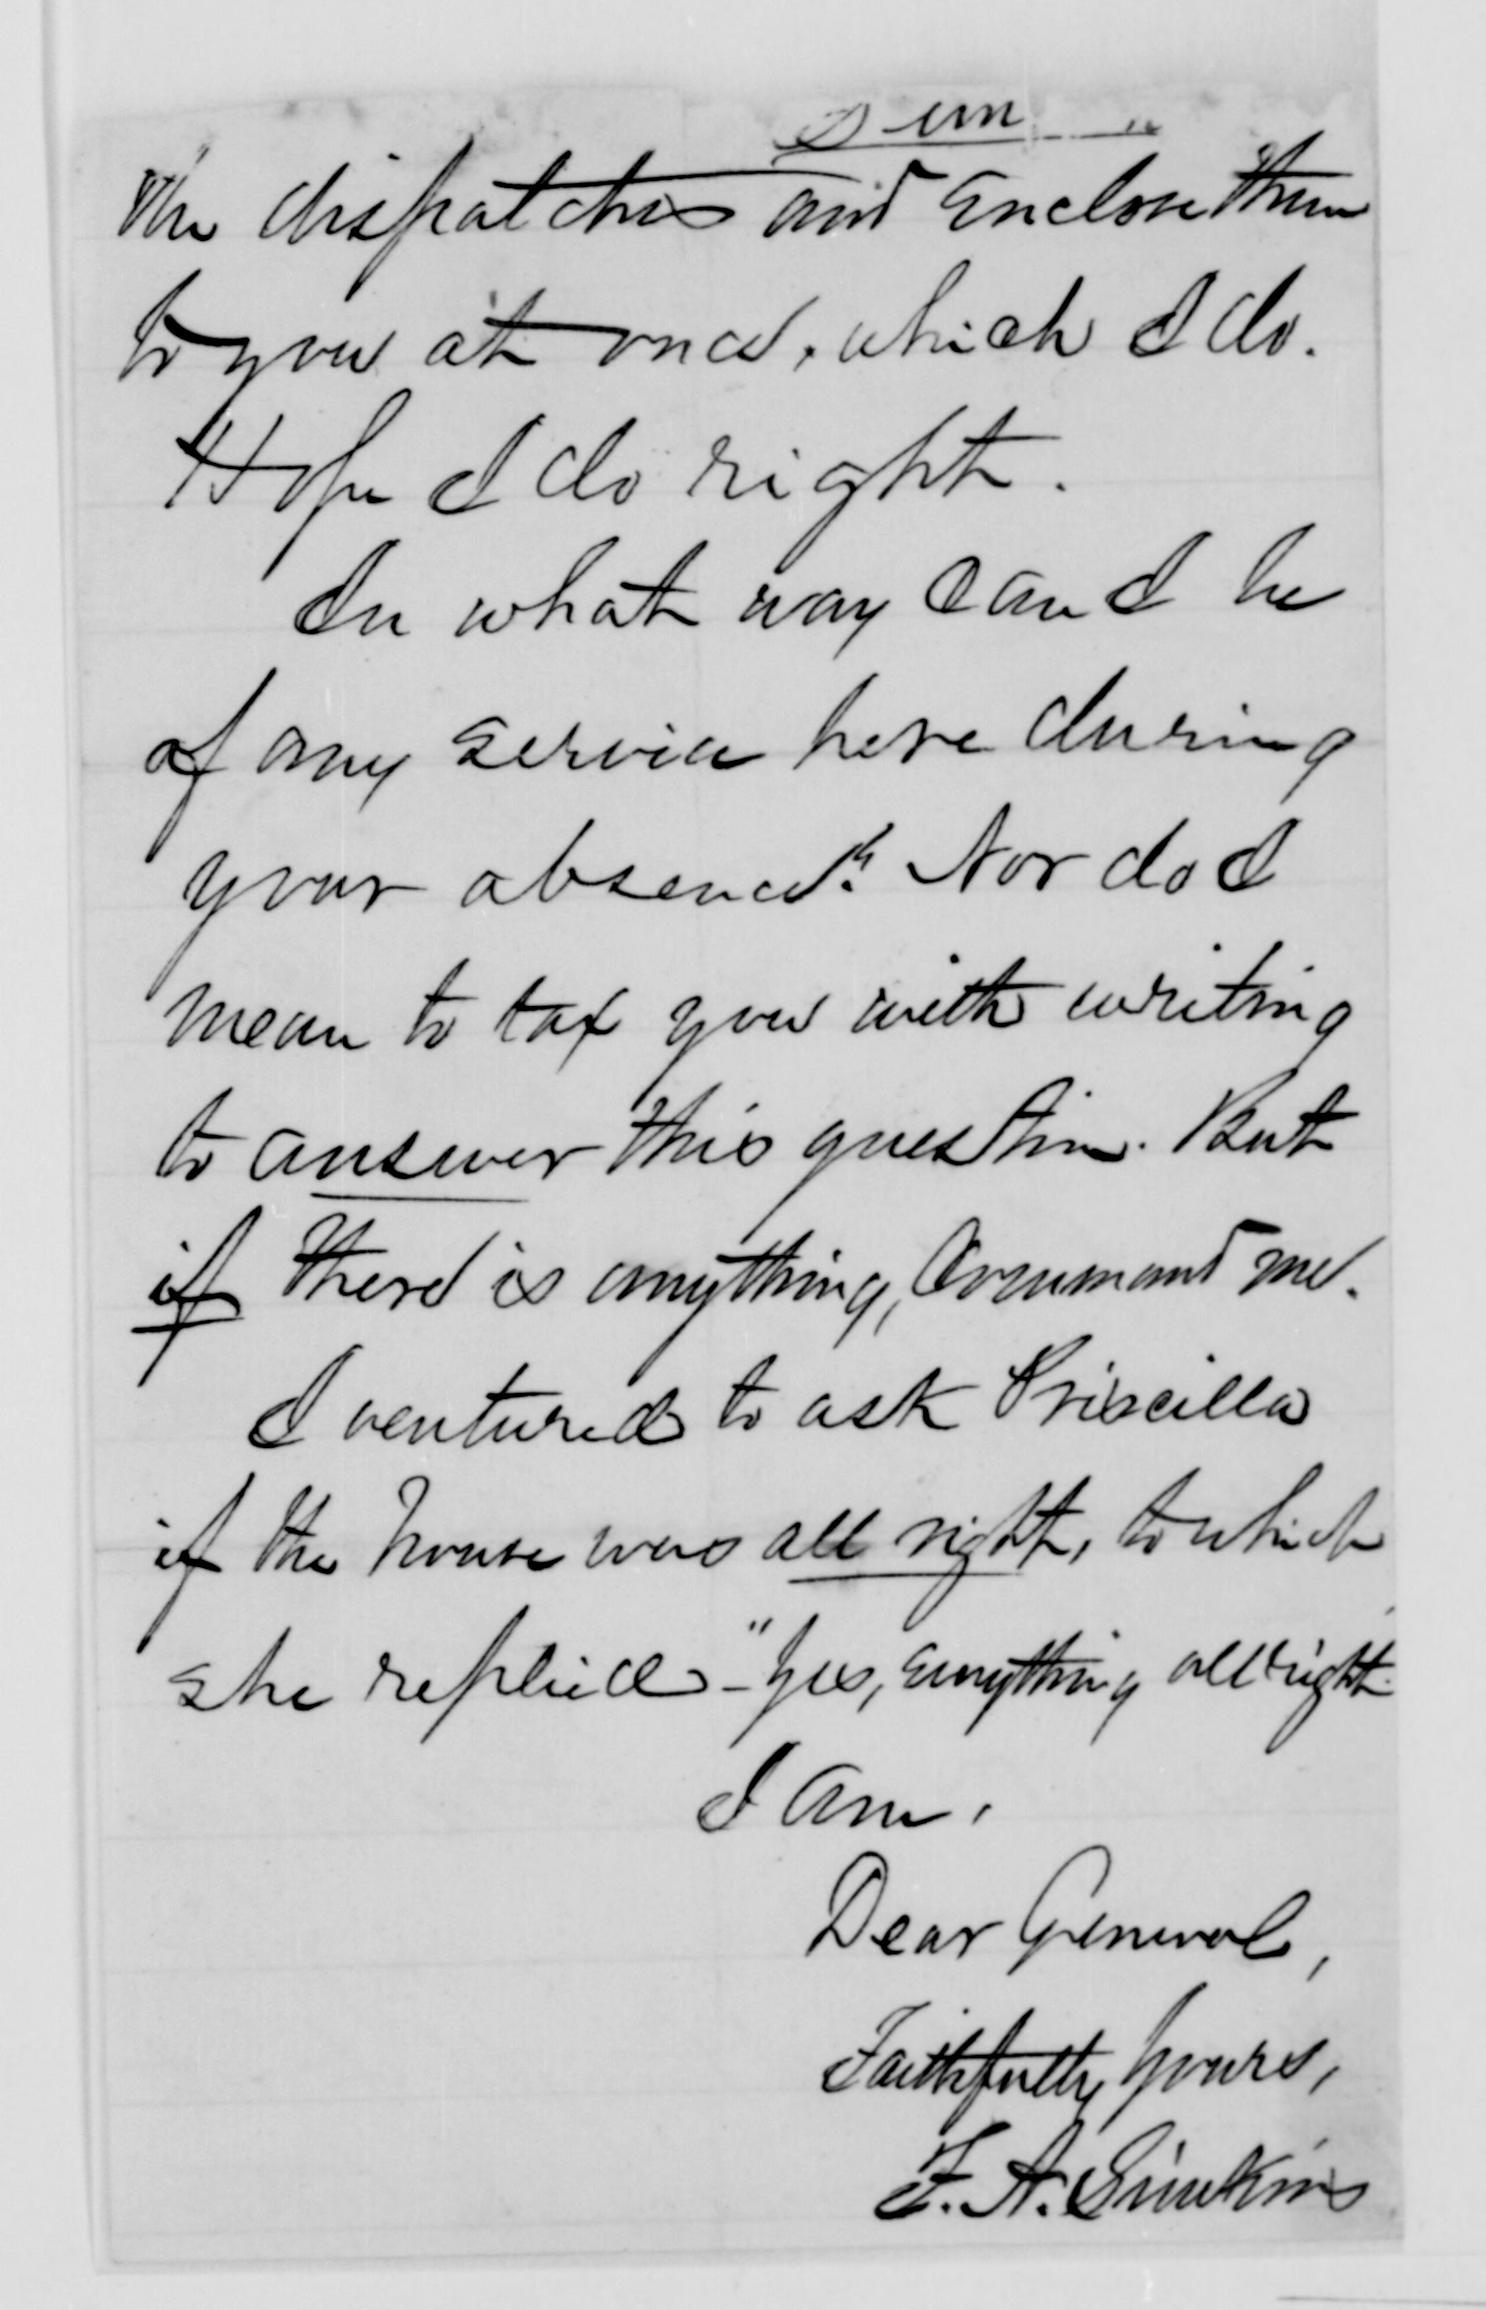 the dispatches and enclose them
to you at once, which I do.
Hope I do right.
In what way can I be
of any service here during
your absence? Nor do I
mean to tax you with writing
to answer this question. But
if there is anything, Command me.
I ventured to ask Priscilla
if the house was all right, to which
she replied - "Yes, everything all right.
I am,
Dear General,
Faithfully Yours,
F. A. Simkins